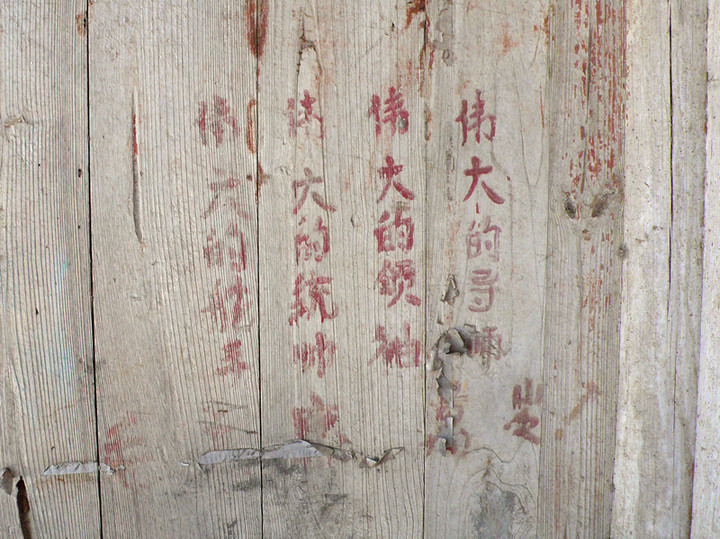 伟大的导师
伟大的领袖
伟大的统帅
伟大的舵手
岁